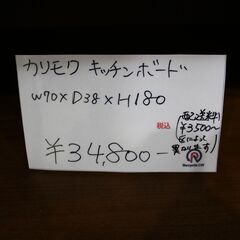 カリモク キッチンボード
W70×D38×H180
税込
¥34,800-
(配送料
¥3,500〜
区によって
異なります)
Recycle Off